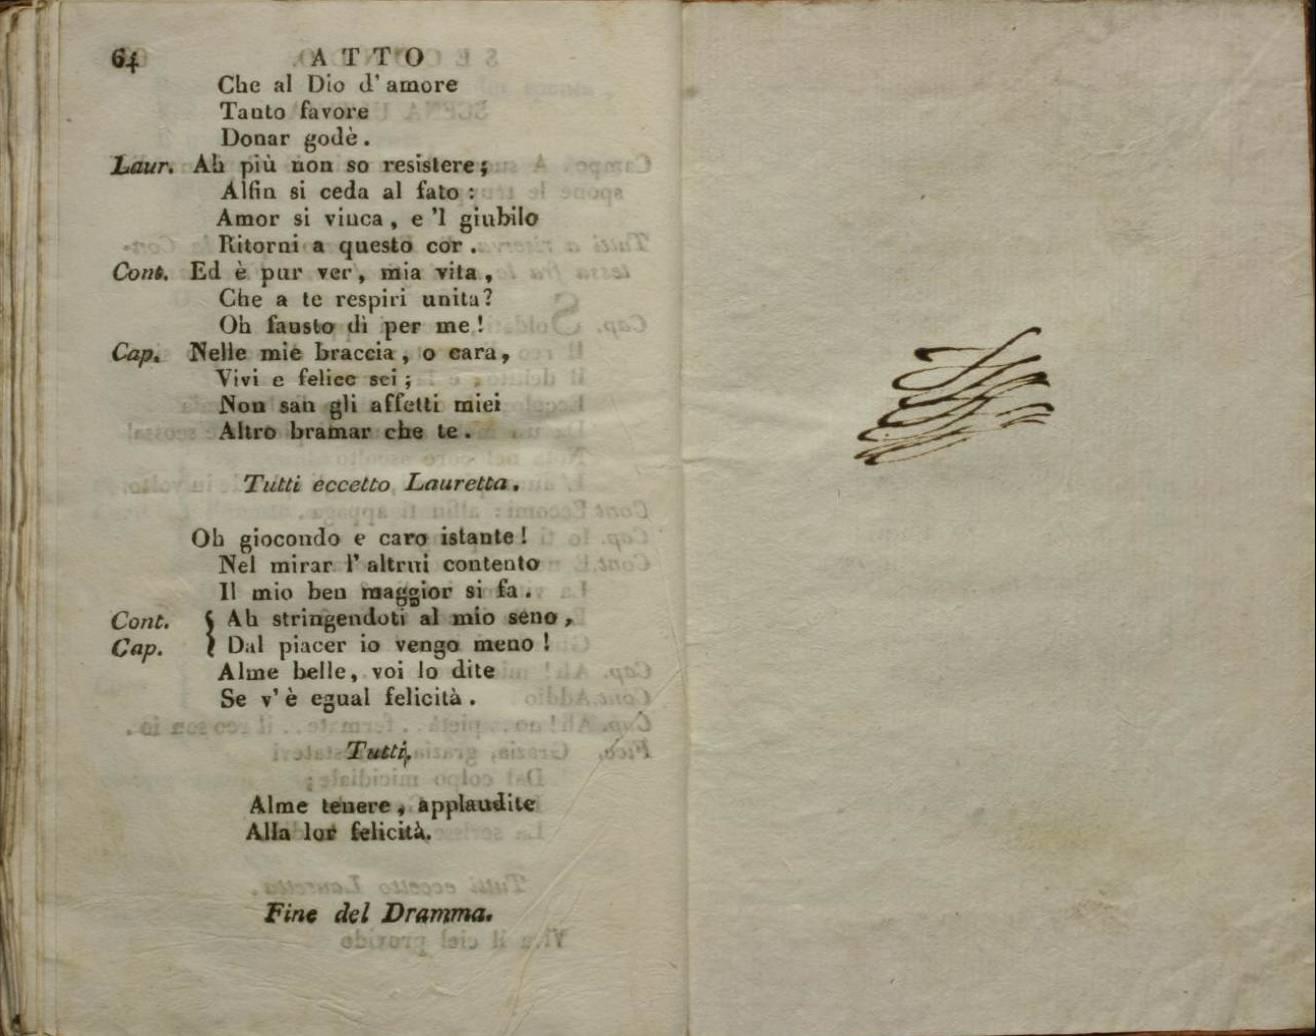 64 ATTO
Che al Dio d' amore
Tanto favore
Donar godè .
Laur. Ah più non so resistere ;
Alfin si ceda al fato :
Amor si vinca , e 'l giubilo
Ritorni a questo cor .
Cont. Ed è pur ver , mia vita ,
Che a te respiri unita ?
Oh fausto dì per me !
Cap. Nelle mie braccia , o cara ,
Vivi e felice sei ;
Non san gli affetti miei
Altro bramar che te .
Tutti eccetto Lauretta .
Oh giocondo e caro istante !
Nel mirar l' altrui contento
Il mio ben maggior si fa .
Cont. { Ah stringendoti al mio seno ,
Cap. Dal piacer io vengo meno !
Alme belle , voi lo dite
Se v' è egual felicità .
Tutti,
Alme tenere , applaudite
Alla lor felicità.
Fine del Dramma.